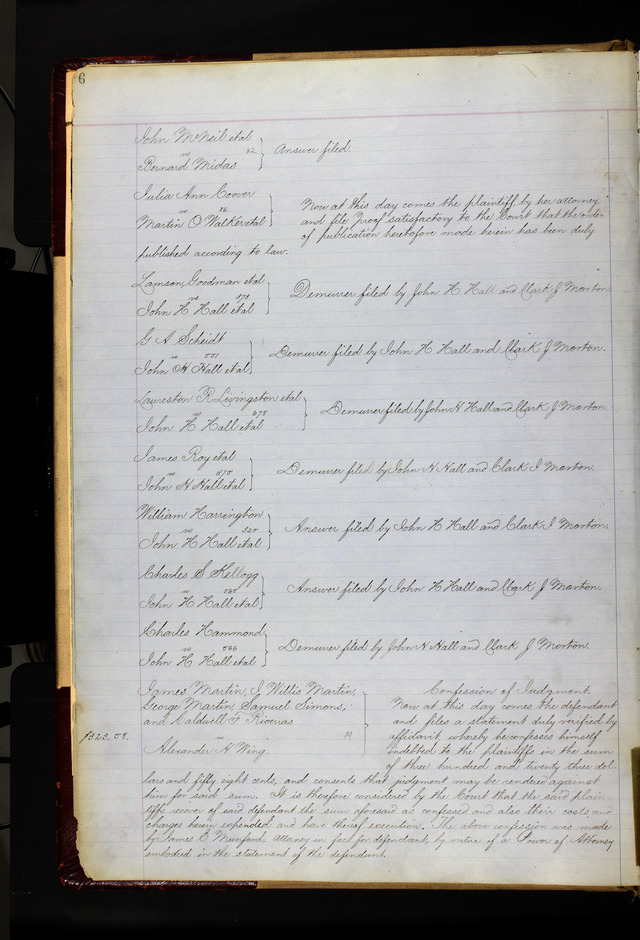 6
John McNeil etal
vs 42 Answer filed.
Bernard Midas
Julia Ann Coover Now at this day comes the plaintiff by her attorney,
vs and file proof satisfactory to the Court that the order
Martin O Walker etal of publication heretofore made herein has been duly
published according to law.
Lamson, Goodman etal
vs Demurrer filed by John H Hall and Clark J Morton.
John H Hall etal
G A Scheidt
vs 551 Demurrer filed by John H Hall and Clark J Morton.
John H Hall etal
Laureston R Livingston etal
vs 678 Demurrer filed by John H Hall and Clark J Morton.
John H Hall etal
James Roy etal
vs 570 Demurrer filed by John H Hall and Clark J Morton.
John H Hall etal
William Harrington
vs 525 Answer filed by John H Hall and Clark J Morton.
John H Hall etal
Charles S Kellogg
vs Answer filed by John H Hall and Clark J Morton.
John H Hall etal
Charles Hammond
vs 566 Demurrer filed by John H Hall and Clark J Morton.
John H Hall etal
James Martin, J Willis Martin, Confession of Judgment.
George Martin, Samuel Simons, Now at this day comes the defendant
and Caldwell F and files a statement duly verified by
$323,58. vs affidavit whereby he confesses himself
Alexander H Wing. M indebted to the plaintiffs in the sum
of three hundred and twenty three dol-
lars and fifty eight cents, and consents that judgment may be rendered against
him for said sum. It is therefore considered by the Court that the said plain-
tiffs recover of said defendant the sum aforesaid as confessed and also their costs and
charges herein expended and have thereof execution. The above confession was made
by James E Munford, attorney in fact for defendant, by virtue of a Power of Attorney
embodied in the statement of the defendant.